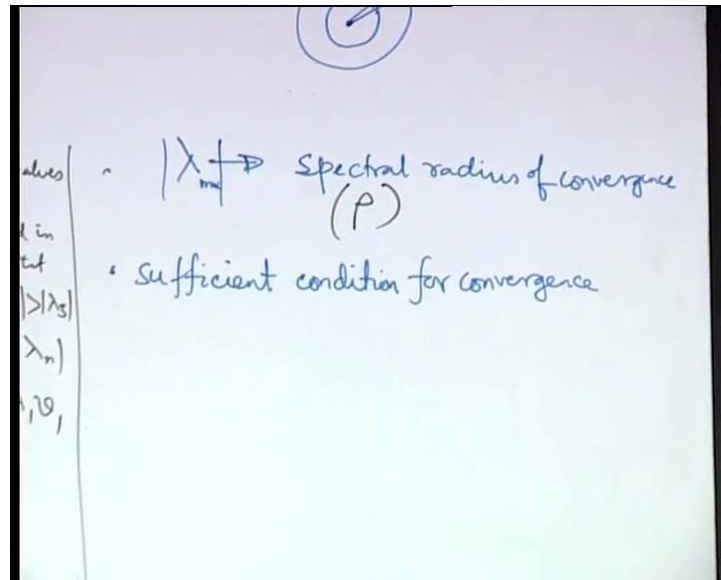 alues
d in
|>|λ₃|
λₙ|
|λ_max| → spectral radius of convergence
(ρ)
• Sufficient condition for convergence